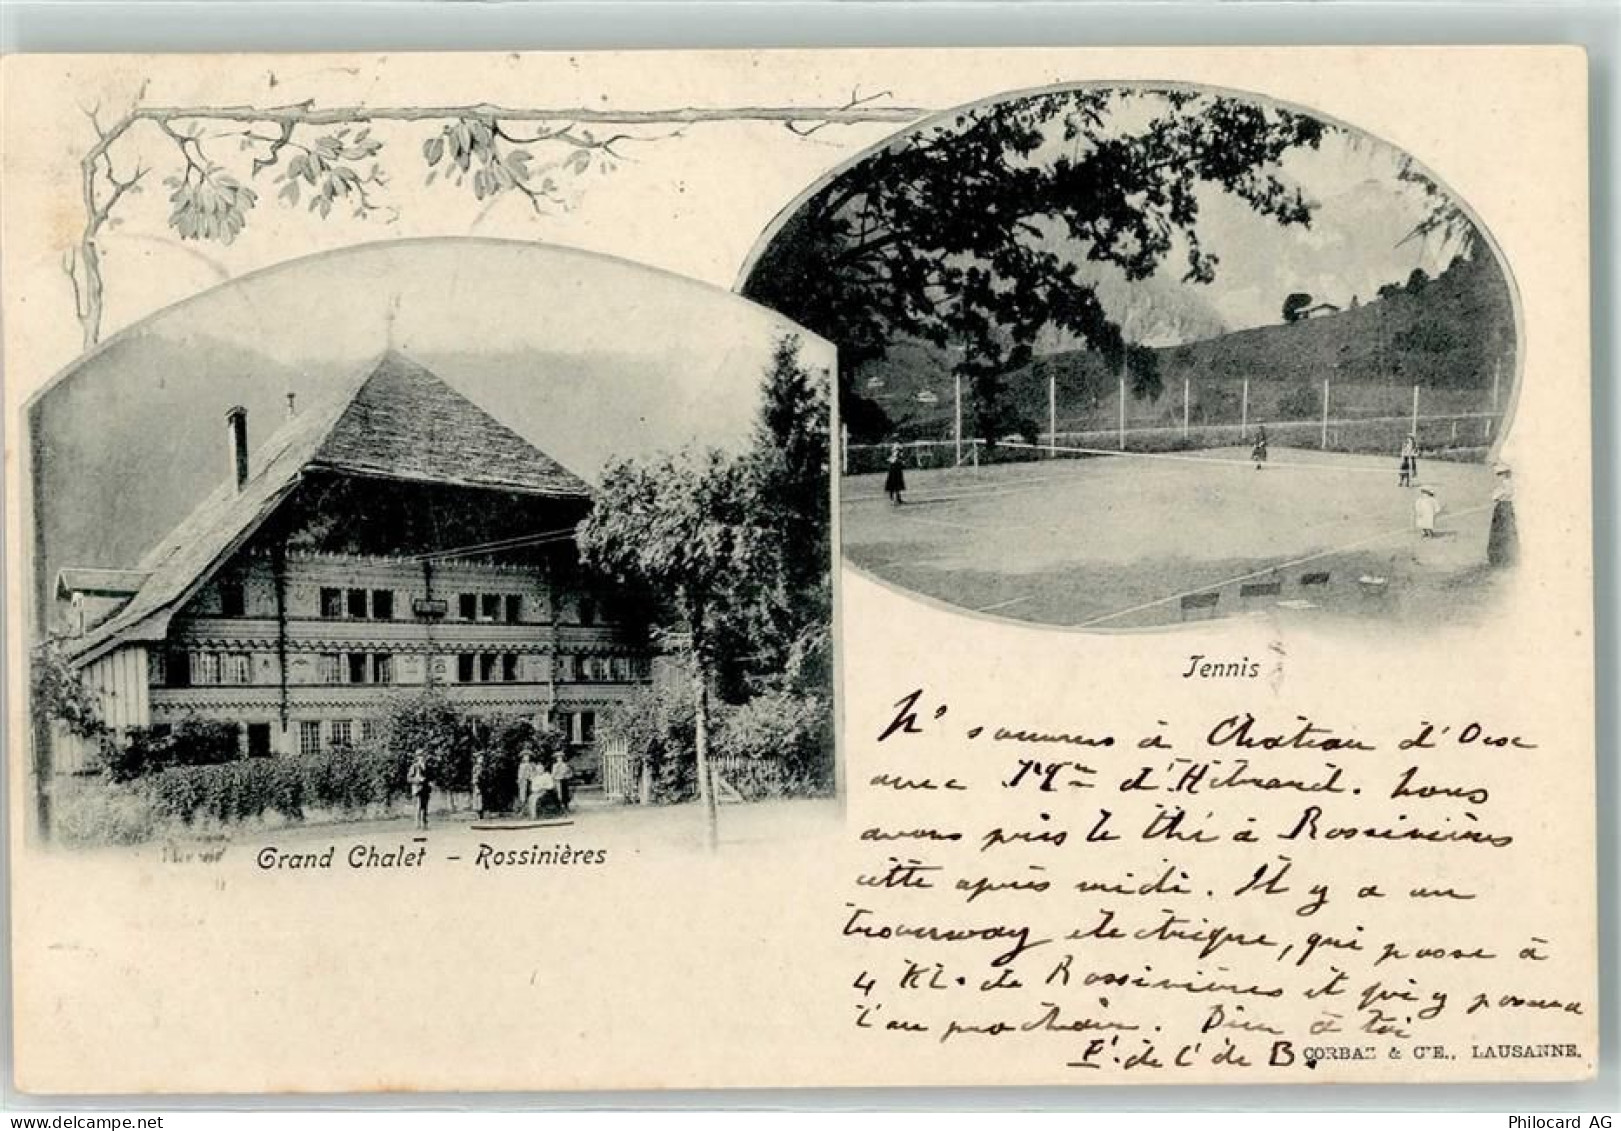 Tennis
Grand Chalet – Rossinières
Ns sommes à Château d'Oex
avec Mme d'Hébrard. Nous
avons pris le thé à Rossinières
cette après midi. Il y a un
tramway électrique, qui passe à
4 Kl. de Rossinières et qui y passera
l'an prochain. Bien à toi
de C' de B.
CORBAZ & CIE., LAUSANNE.
Philocard AG